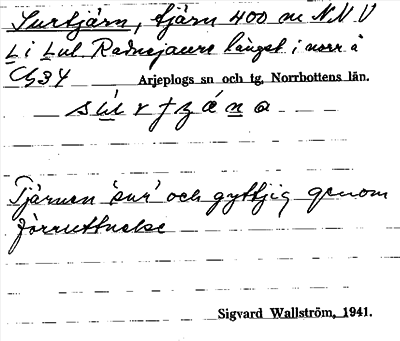 Surtjärn, tjärn 400 m NNV
L. i Lul. Radnejaure längst i norr å
Ch 34 Arjeplogs sn och tg, Norrbottens län.
Tjärnen 'sur' och gyttjig genom
förruttnelse
Sigvard Wallström, 1941.